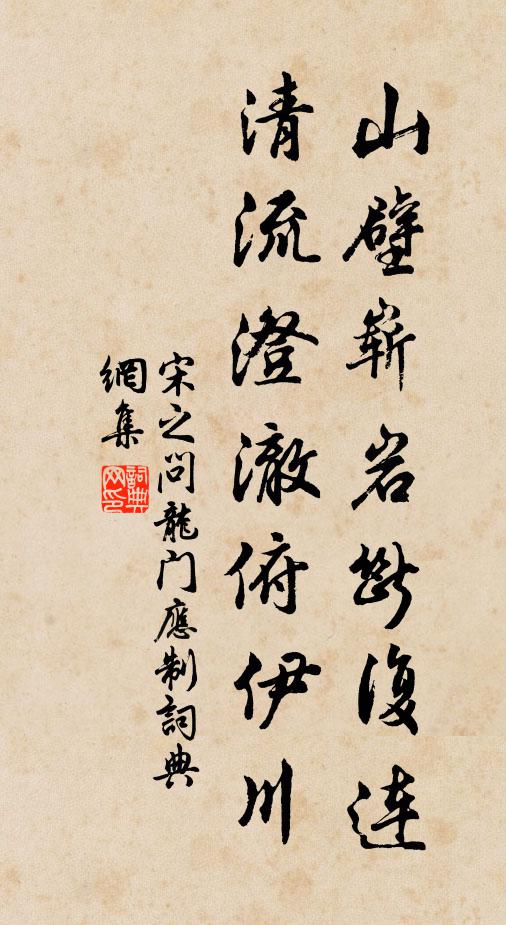 山壁嶄岩斷復連
清流澄澈俯伊川
宋之问龍门應制詞典
網集
詞典网印